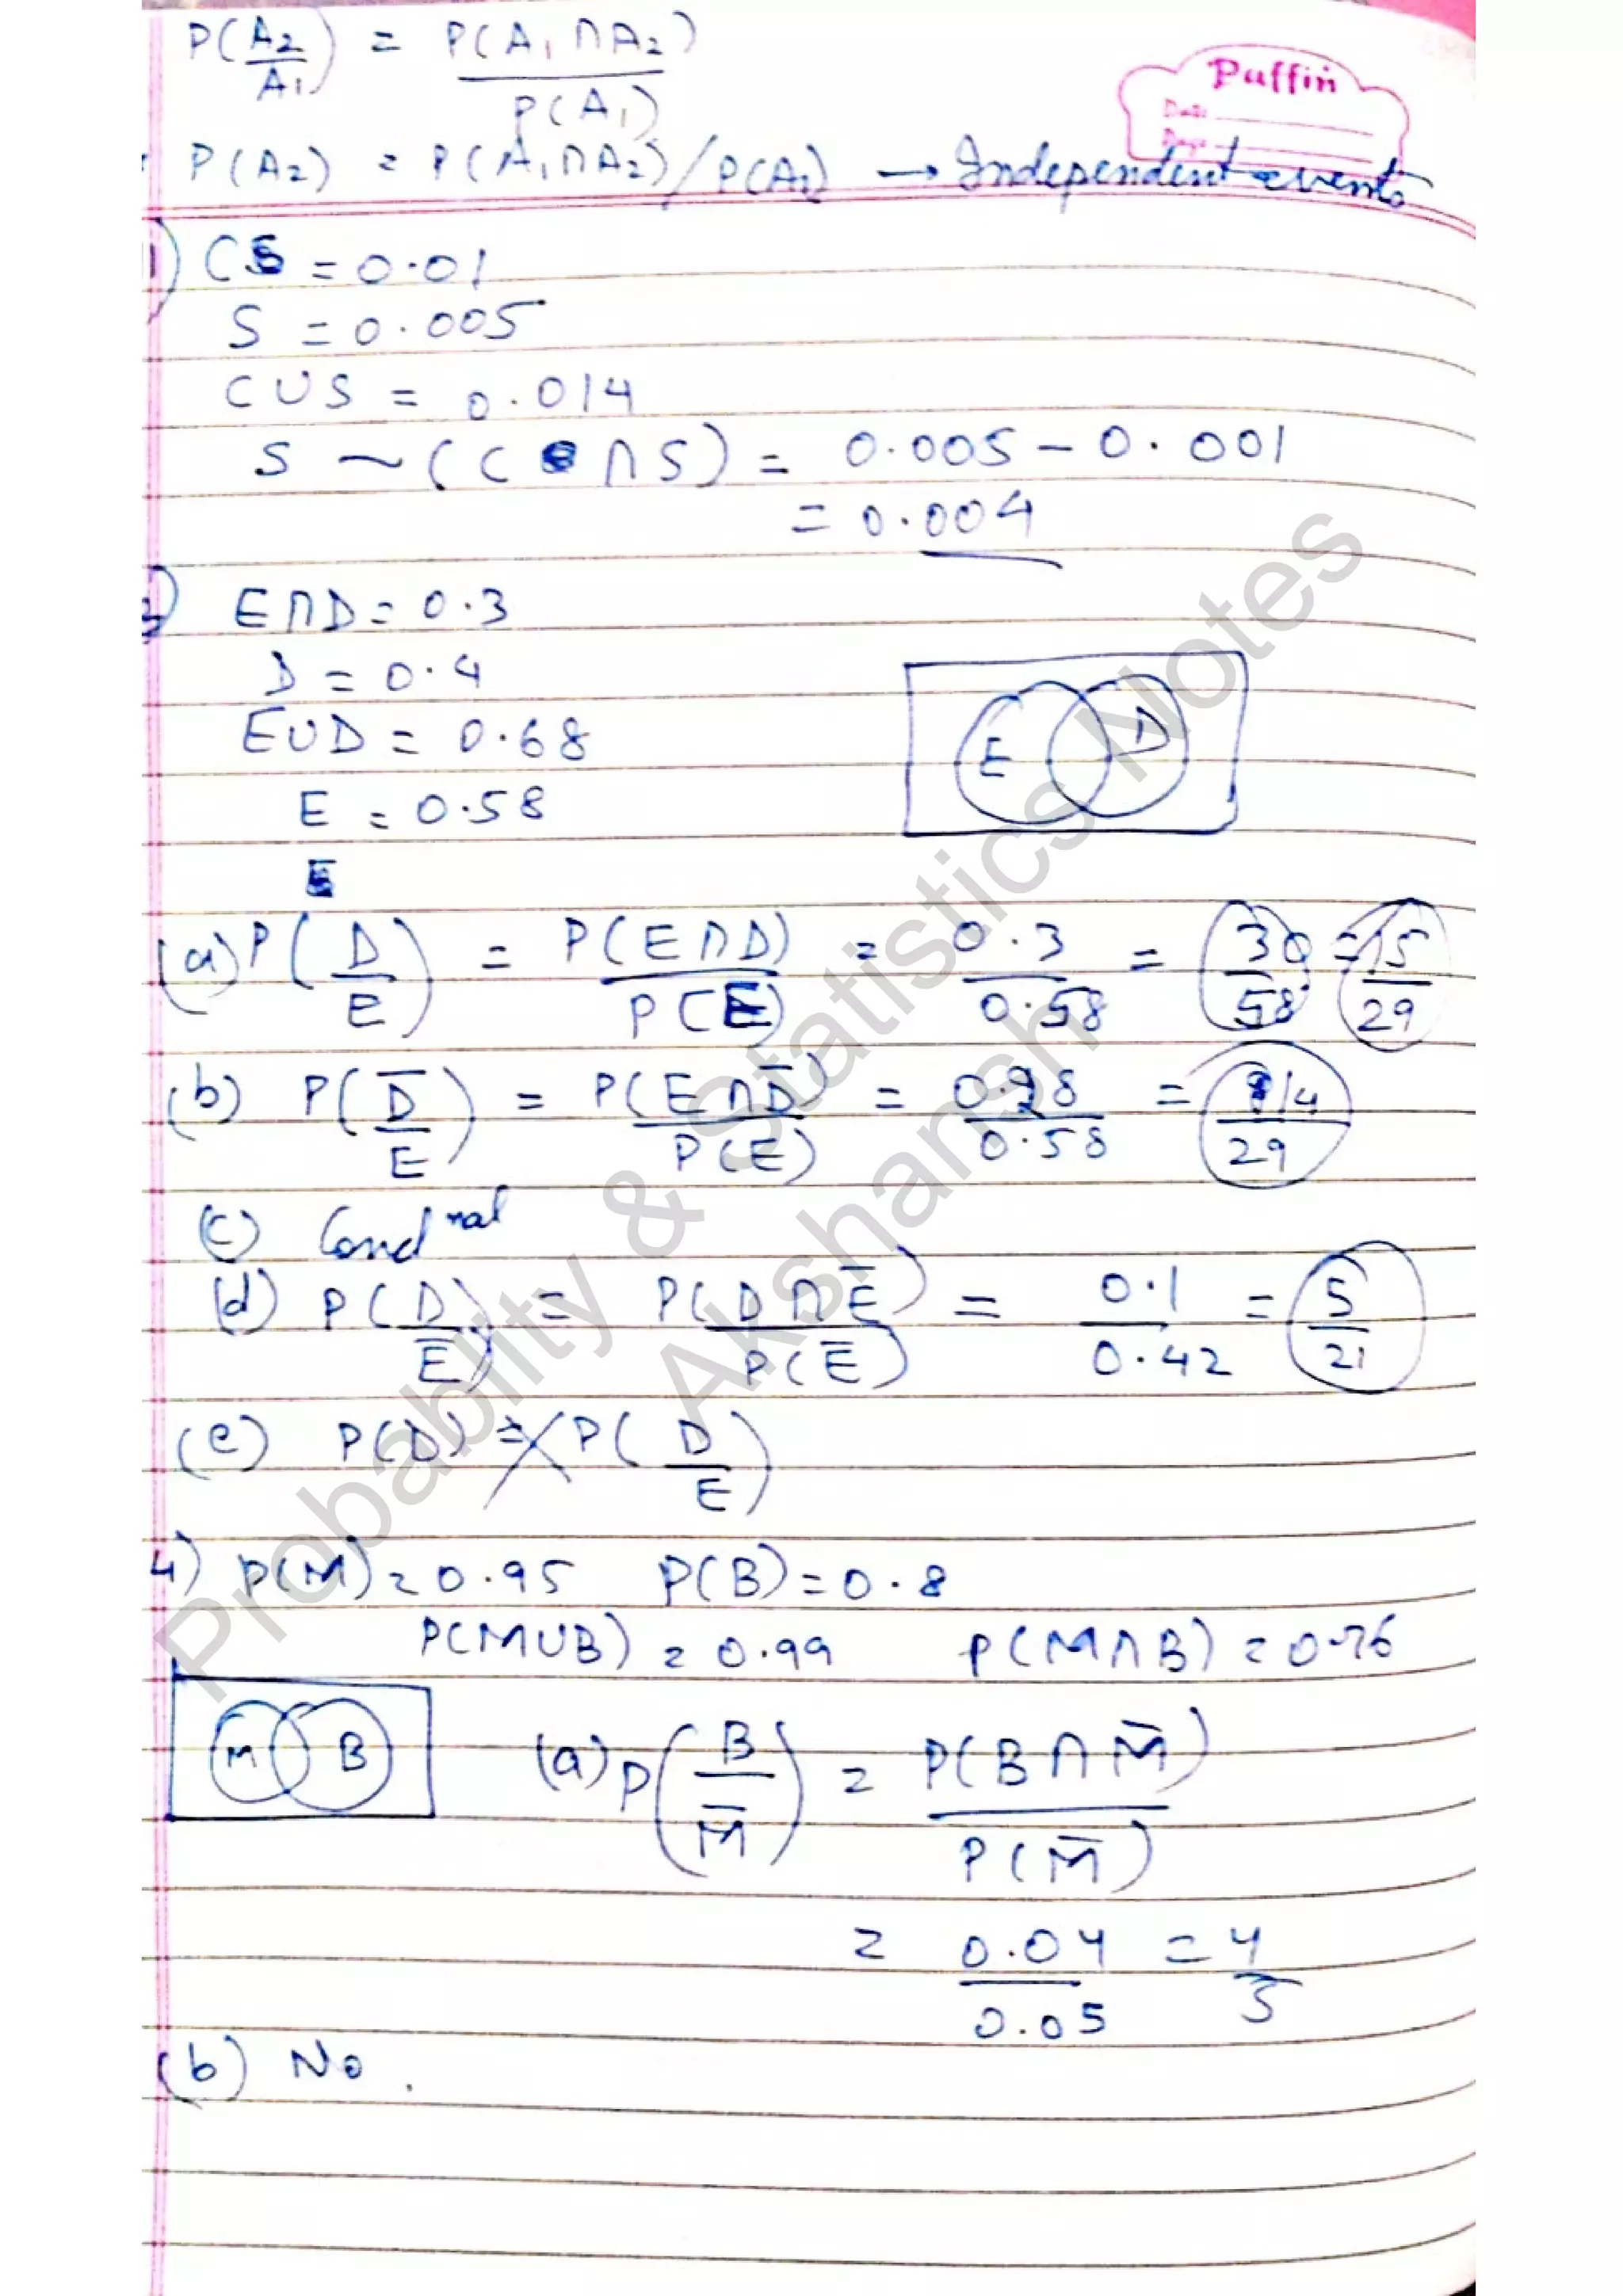 P(A₂/A₁) = P(A₁∩A₂)/P(A₁)
Puffin
Date
P(A₂) = P(A₁∩A₂)/P(A₁) → Independent events
1) C = 0.01
S = 0.005
C∪S = 0.014
S ~ (C ∩ S) = 0.005 - 0.001
= 0.004
E∩D = 0.3
D = 0.4
E∪D = 0.68
E = 0.58
E D
E
(a) P(D/E) = P(E∩D)/P(E) = 0.3/0.58 = 30/58 = 15/29
(b) P(D̅/E) = P(E∩D̅)/P(E) = 0.28/0.58 = 14/29
(c) Condnal
(d) P(D/E̅) = P(D∩E̅)/P(E̅) = 0.1/0.42 = 5/21
(e) P(D) ≠ P(D/E)
4) P(M) = 0.95 P(B) = 0.8
P(M∪B) = 0.99 P(M∩B) = 0.76
M B
(a) P(B/M̅) = P(B∩M̅)/P(M̅)
= 0.04/0.05 = 4/5
(b) No.
Probability & Statistics Notes
Akshansh